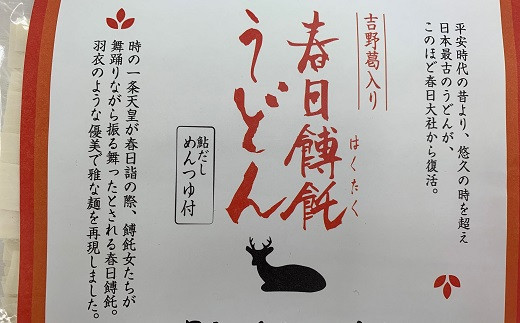 平安時代の昔より、悠久の時を超え
日本最古のうどんが、
このほど春日大社から復活。
吉野葛入り
春日餺飥
はくたく
うどん
鮎だし
めんつゆ付
時の一条天皇が春日詣の際、餺飥女たちが
舞踊りながら振る舞ったとされる春日餺飥。
羽衣のような優美で雅な麺を再現しました。